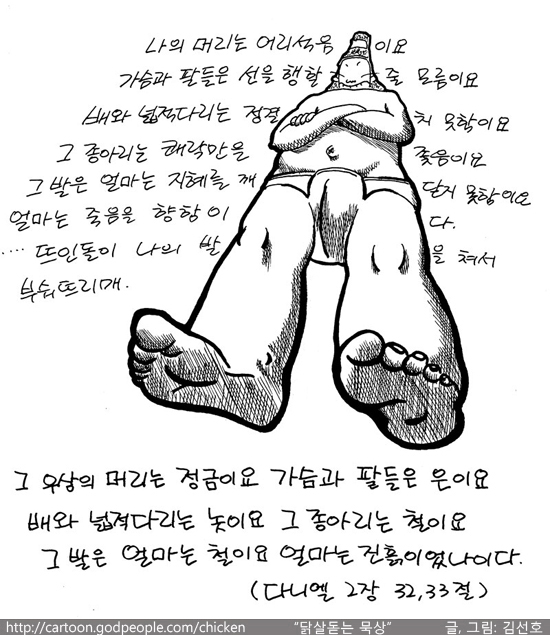 나의 머리는 어리석음이요
가슴과 팔들은 선을 행할 줄 모름이요
배와 넓적다리는 정결치 못함이요
그 종아리는 쾌락만을 쫓음이요
그 발은 얼마는 지혜를 깨닫지 못함이요
얼마는 죽음을 향함이다.
.... 뜨인돌이 나의 발을 쳐서
부숴뜨리매.
그 우상의 머리는 정금이요 가슴과 팔들은 은이요
배와 넓적다리는 놋이요 그 종아리는 철이요
그 발은 얼마는 철이요 얼마는 진흙이었나이다.
(다니엘 2장 32,33절)
http://cartoon.godpeople.com/chicken "닭살돋는 묵상" 글, 그림: 김선호